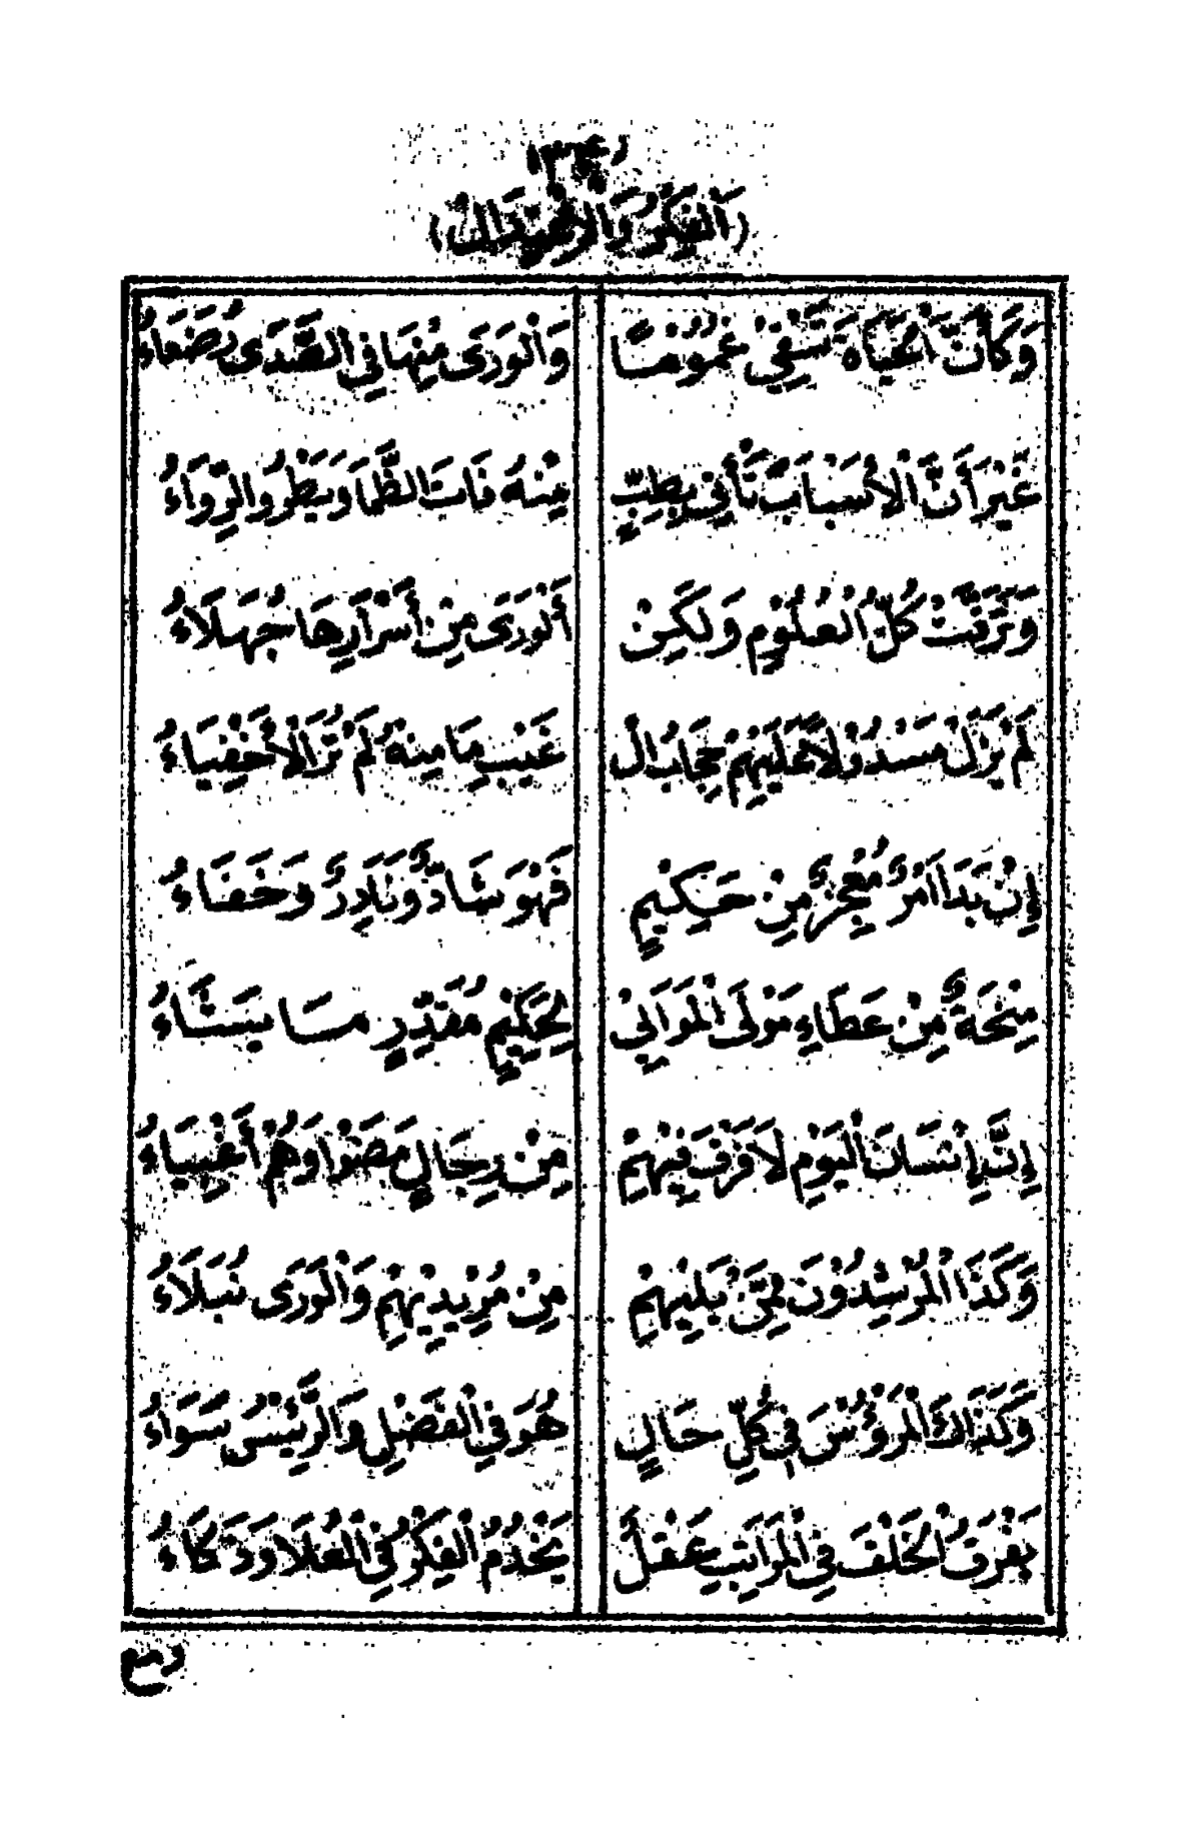 (الفكر والاعتدال)
وَكَأَنَّ الْحَيَاةَ تَسْقِي غُمُوْمًا وَالْوَرَى مِنْهَا فِي الصَّدَى رُضَعَاءُ
غَيْرَ أَنَّ الْأَسْبَابَ تَأْفِي بِطِبٍّ مِنْهُ فَاتَ الظَّمَا وَيَطْرُو الرِّوَاءُ
وَتَرَقَّتْ كُلُّ الْعُلُوْمِ وَلَكِنْ أَلْوَرَى مِنْ أَسْرَارِهَا جُهَلَاءُ
لَمْ يَزَلْ مَسْدُوْلًا عَلَيْهِمْ حِجَابُ الْ غَيْبِ مَا مِنْهُ لَمْ تُرَ الْأَخْفِيَاءُ
إِنْ بَدَا أَمْرٌ مُعْجِزٌ مِنْ حَكِيْمٍ فَهْوَ شَاذٌّ وَنَادِرٌ وَخَفَاءُ
مِنْحَةٌ مِنْ عَطَاءِ مَوْلَى الْمَوَالِيْ لِحَكِيْمٍ مُقَدِّرٍ مَا يَشَاءُ
إِنَّ إِنْسَانَ الْيَوْمِ لَا فَرْقَ فِيْهِمْ مِنْ رِجَالٍ مَضَوْا وَهُمْ أَغْبِيَاءُ
وَكَذَا الْمُرْشِدُوْنَ مِمَّنْ يَلِيْهِمْ مِنْ مُرِيْدِيْهِمْ وَالْوَرَى نُبَلَاءُ
وَكَذَاكَ الْمَرْؤُسُ فِي كُلِّ حَالٍ هُوَ فِي الْفَضْلِ وَالرَّئِيْسُ سَوَاءُ
يَفْرَقُ الْخَلْفُ فِي الْمَرَاتِبِ عَقْلٌ يَخْدُمُ الْفِكْرُ فِي الْعُلَا وَذَكَاءُ